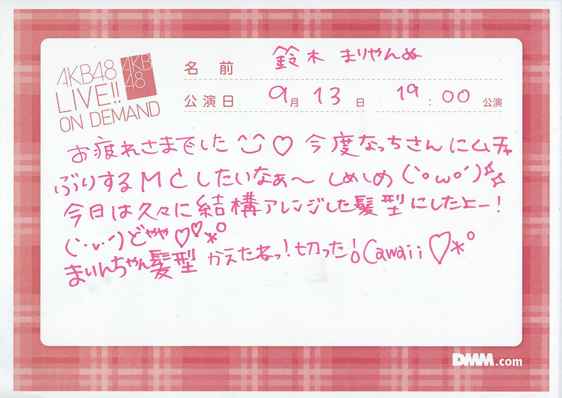 AKB48
LIVE!!
ON DEMAND
AKB
48
名前 鈴木 まりやんぬ
公演日 9月 13日 19:00 公演
お疲れさまでした ♡ 今度なっちさんにムチャ
ぶりするMCしたいなぁ〜 しめしめ(`・ω・´)☆☆
今日は久々に結構アレンジした髪型にしたよー!
(`・v・´)どやや♡♡*°
まりんちゃん髪型 かえたねっ!切った!Cawaii♡*°
DMM.com